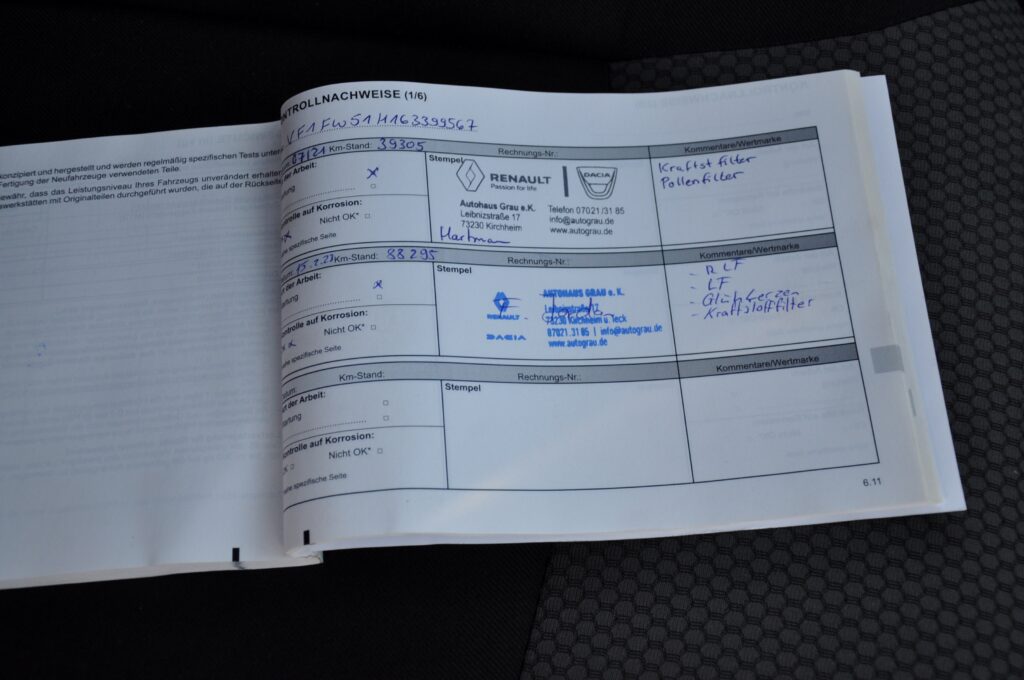 konzipiert und hergestellt und werden regelmäßig spezifischen Tests unter
Fertigung der Neufahrzeuge verwendeten Teile.
ewähr, dass das Leistungsniveau Ihres Fahrzeugs unverändert erhalten
swerkstätten mit Originalteilen durchgeführt wurden, die auf der Rückseite
NTROLLNACHWEISE (1/6)
VF1FW51H163399567
07/21 Km-Stand: 39305 Rechnungs-Nr.: Kommentare/Wertmarke
der Arbeit: x
artung
Stempel
RENAULT
Passion for life
DACIA
Autohaus Grau e.K.
Leibnizstraße 17
73230 Kirchheim
Telefon 07021/31 85
info@autograu.de
www.autograu.de
Hartman
Kraftst filter
Pollenfilter
ntrolle auf Korrosion:
Nicht OK*
x
ehe spezifische Seite
tum: 15.2.23 Km-Stand: 88295 Rechnungs-Nr.: Kommentare/Wertmarke
t der Arbeit: x
artung
Stempel
RENAULT
DACIA
AUTOHAUS GRAU e.K.
Leibnizstraße 17
73230 Kirchheim u. Teck
07021.31 85 | info@autograu.de
www.autograu.de
- RLF
- LF
- Glühkerzen
- Kraftstoffilter
ontrolle auf Korrosion:
Nicht OK*
x
ehe spezifische Seite
tum: Km-Stand: Rechnungs-Nr.: Kommentare/Wertmarke
rt der Arbeit:
artung
Stempel
ontrolle auf Korrosion:
Nicht OK*
ehe spezifische Seite
6.11